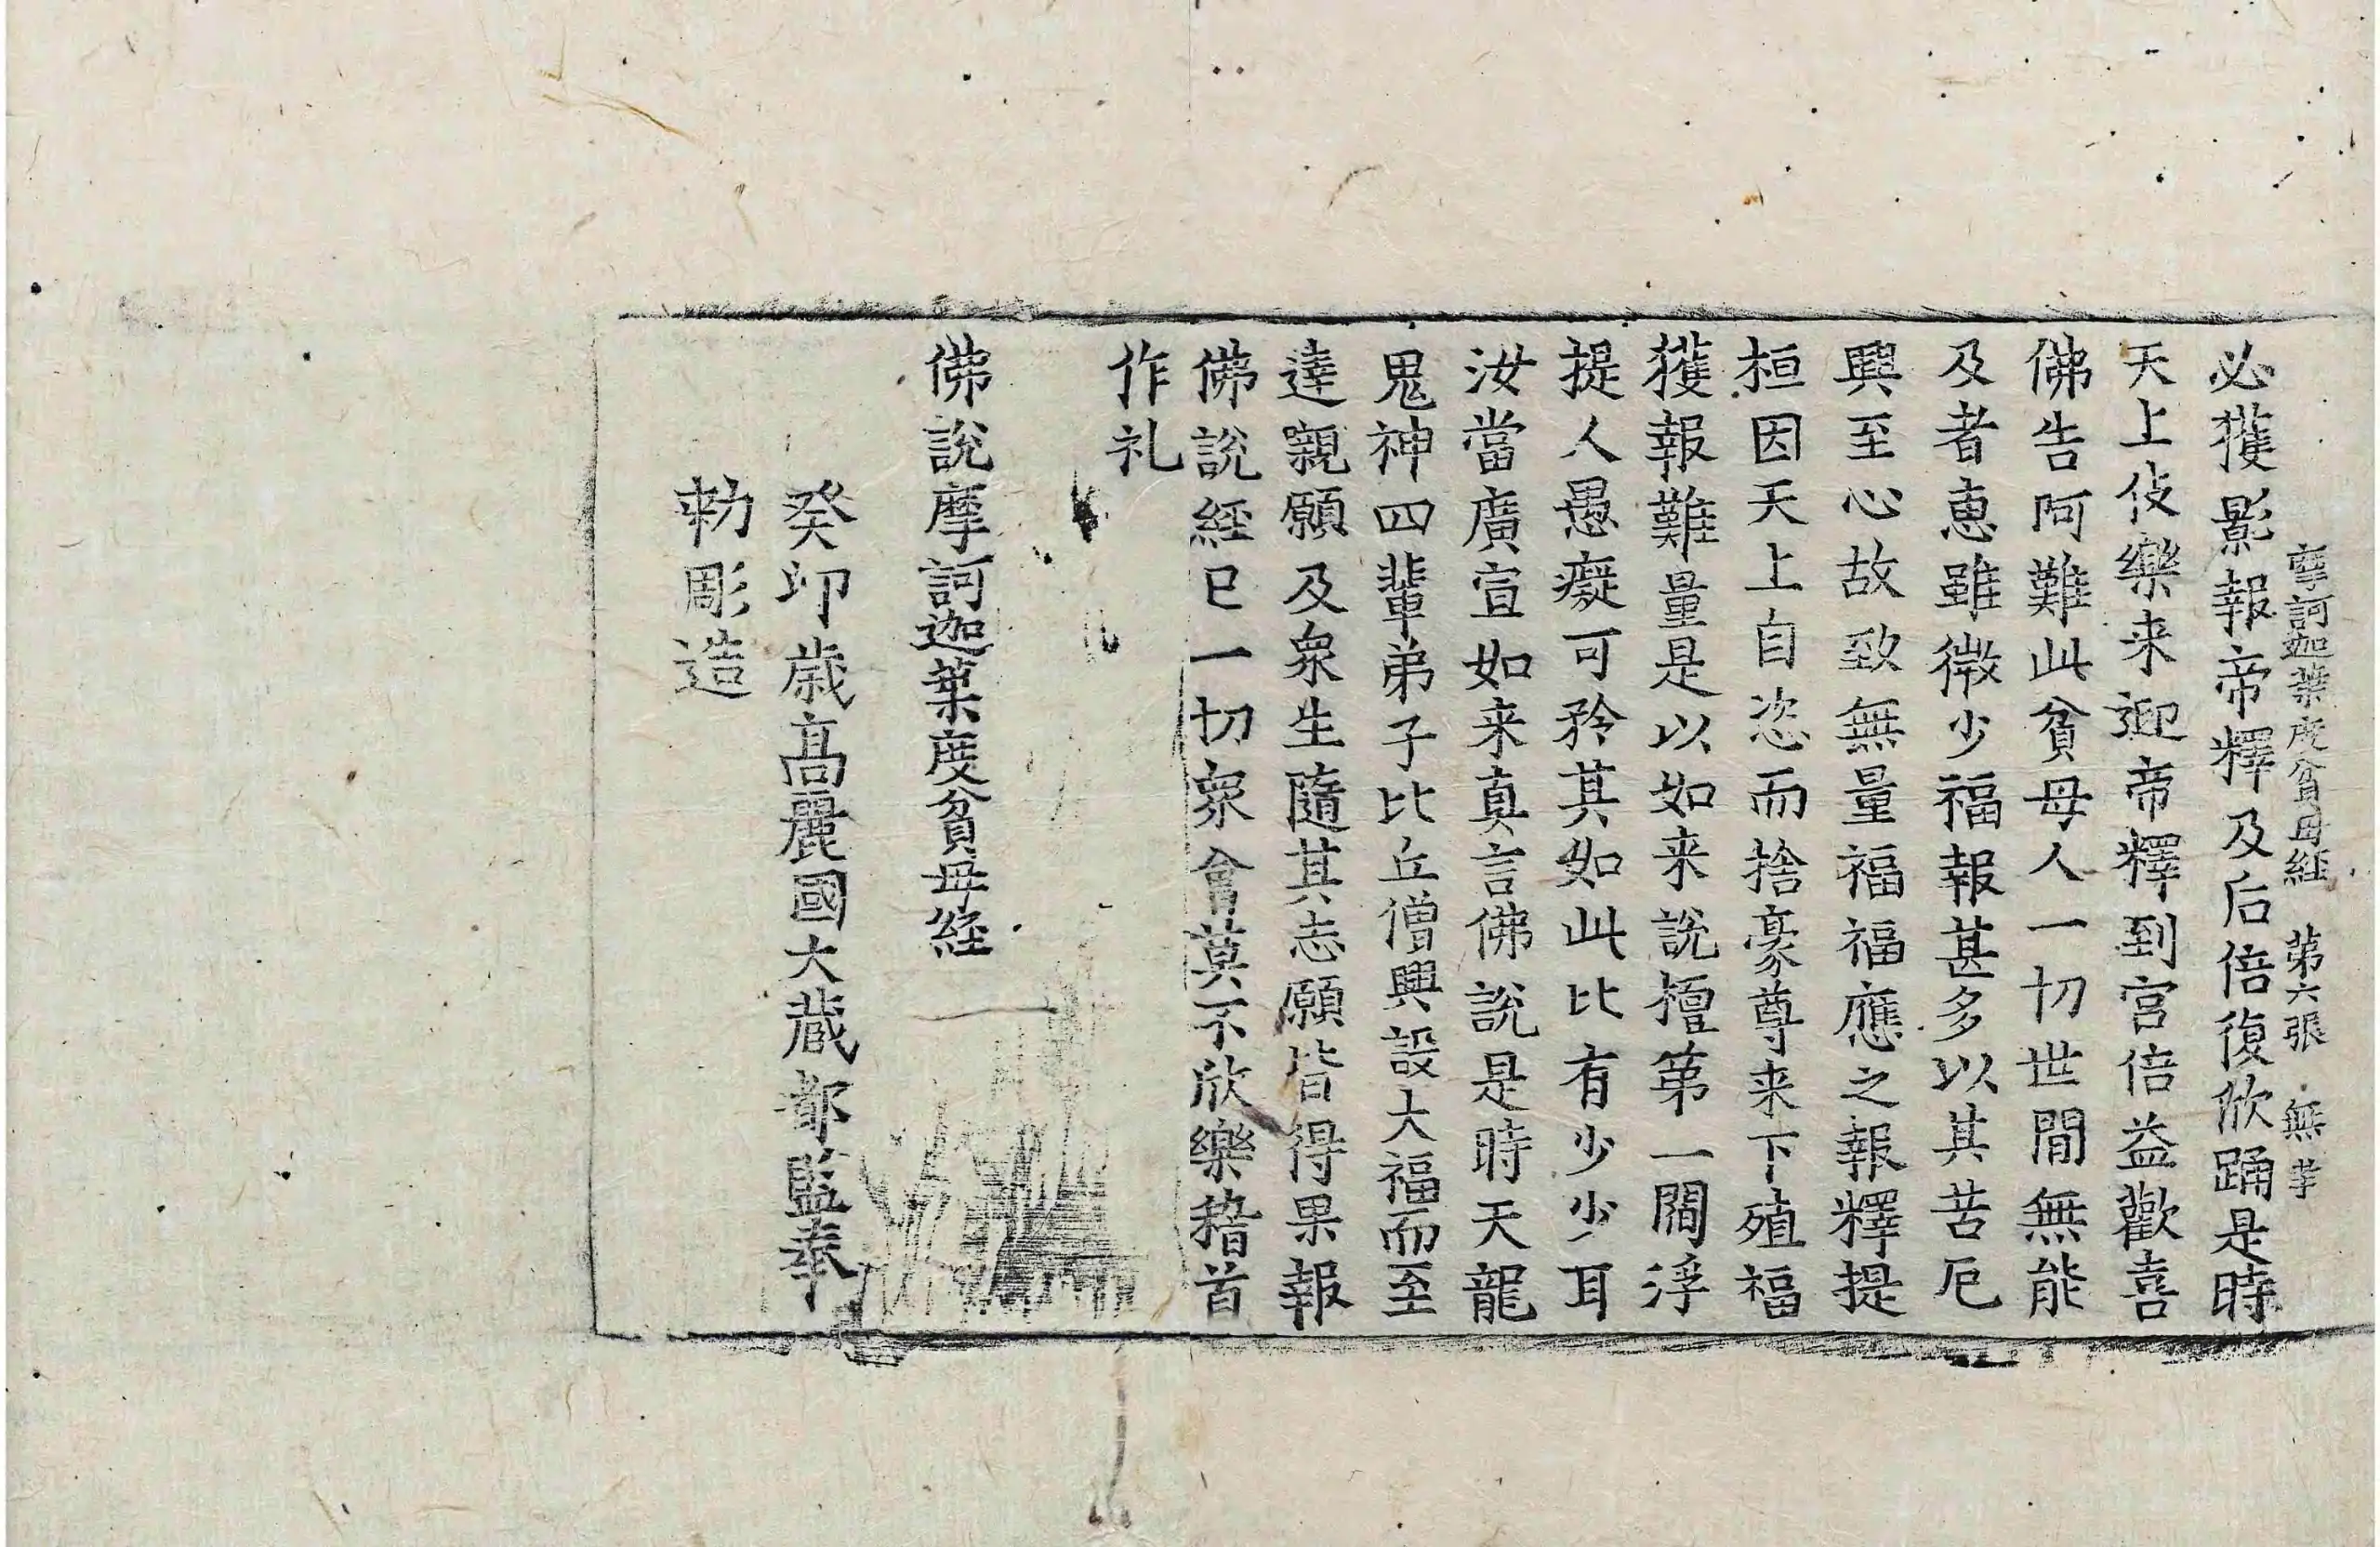 摩訶迦葉度貧母経 第六張 無
必獲影報帝釋及后倍復欣踊是時
天上伎樂来迎帝釋到宮倍益歡喜
佛告阿難此貧母人一切世間無能
及者惠雖微少福報甚多以其苦厄
興至心故致無量福福應之報釋提
桓因天上自恣而捨豪尊来下殖福
獲報難量是以如来說檀第一閻浮
提人愚癡可矜其如此比有少少耳
汝當廣宣如来真言佛說是時天龍
鬼神四輩弟子比丘僧興設大福而至
達親願及衆生隨其志願皆得果報
佛說經已一切衆會莫不欣樂稽首
作礼
佛說摩訶迦葉度貧母経
癸卯歳高麗國大蔵都監奉
勑彫造